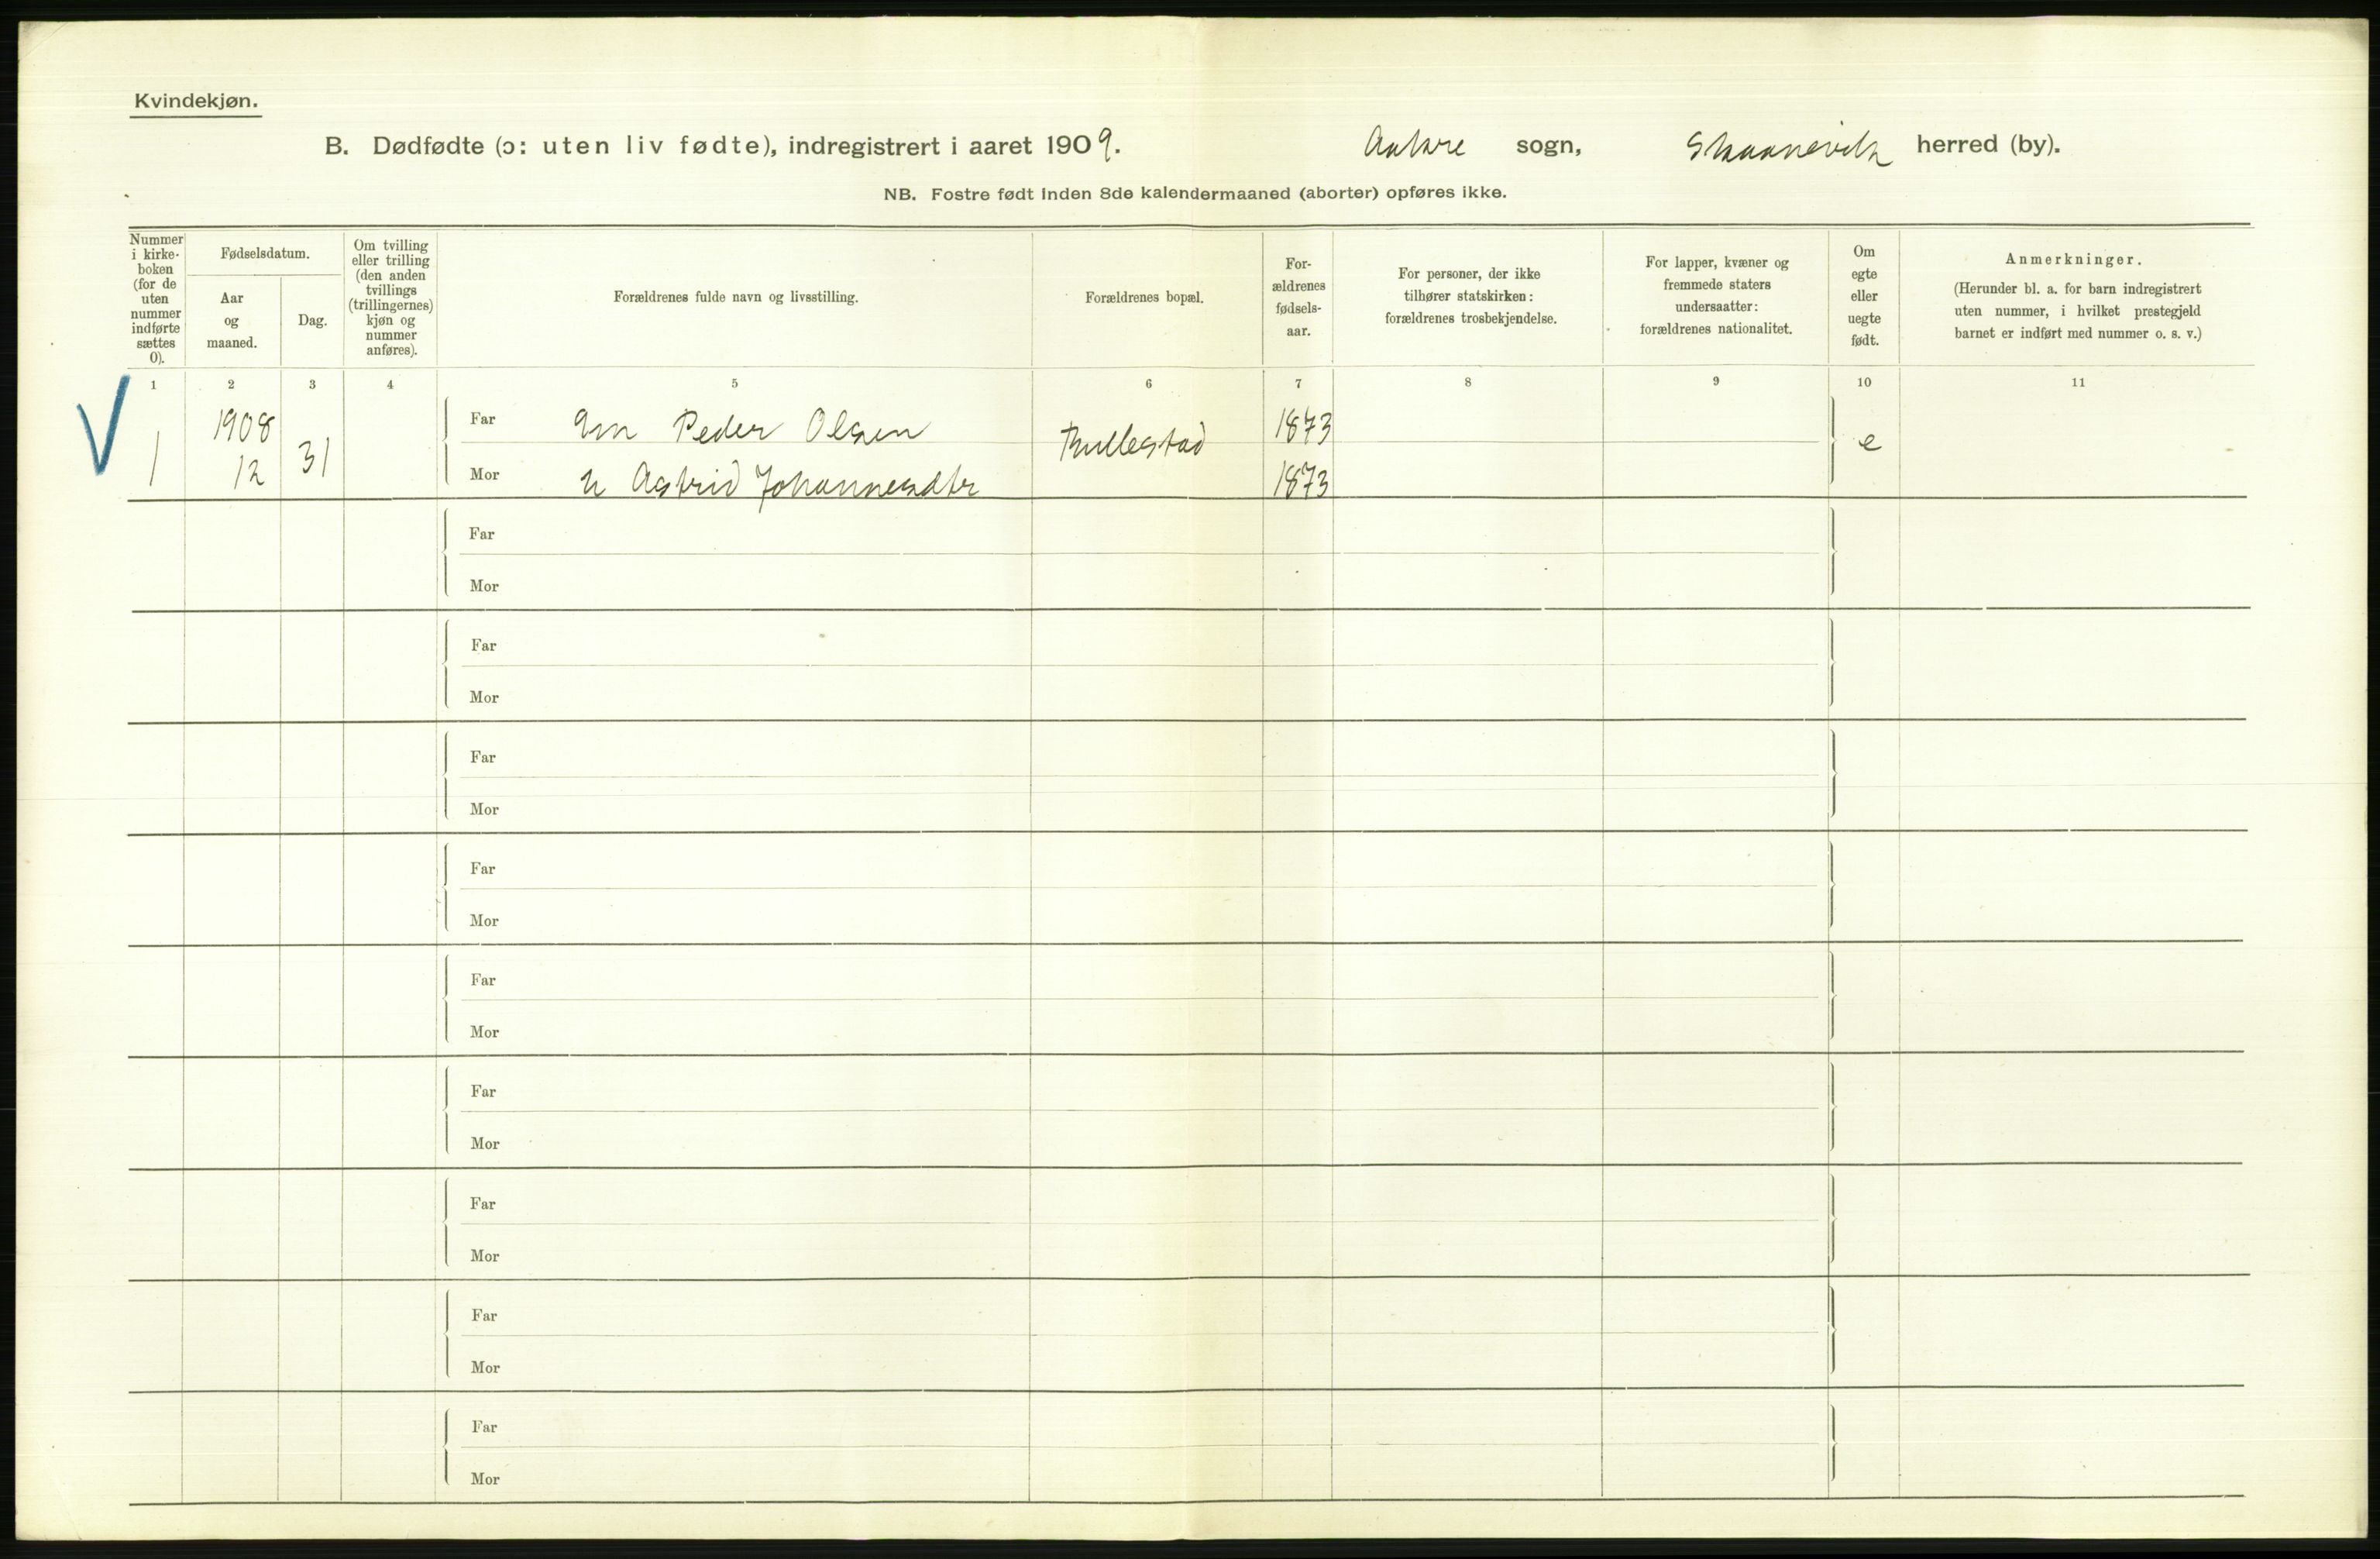 Kvindekjøn.
B. Dødfødte (ɔ: uten liv fødte), indregistrert i aaret 1909. Aakre sogn, Skaanevik herred (by).
NB. Fostre født inden 8de kalendermaaned (aborter) opføres ikke.
Nummer i kirke-boken (for de uten nummer indførte sættes 0).
Fødselsdatum.
Aar og maaned.
Dag.
Om tvilling eller trilling (den anden tvillings (trillingernes) kjøn og nummer anføres).
Forældrenes fulde navn og livsstilling.
Forældrenes bopæl.
For-ældrenes fødsels-aar.
For personer, der ikke tilhører statskirken: forældrenes trosbekjendelse.
For lapper, kvæner og fremmede staters undersaatter: forældrenes nationalitet.
Om egte eller uegte født.
Anmerkninger.
(Herunder bl. a. for barn indregistrert uten nummer, i hvilket prestegjeld barnet er indført med nummer o. s. v.)
1 2 3 4 5 6 7 8 9 10 11
1 1908 12 31
Far Gm Peder Olsen Tullestad 1873 e
Mor H Astrid Johannesdtr 1873
Far
Mor
Far
Mor
Far
Mor
Far
Mor
Far
Mor
Far
Mor
Far
Mor
Far
Mor
Far
Mor